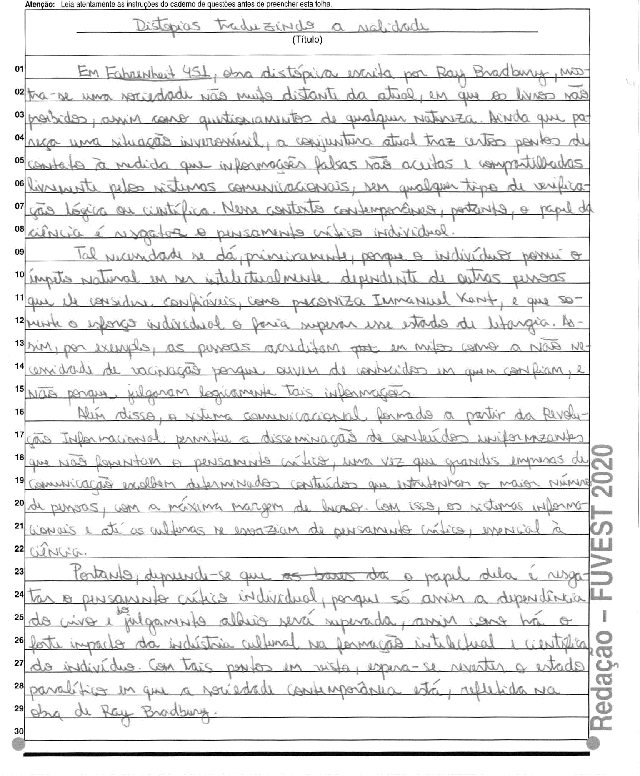 Atenção: Leia atentamente as instruções do caderno de questões antes de preencher esta folha.
Distopias traduzindo a realidade
(Título)
01 Em Fahrenheit 451, obra distópica escrita por Ray Bradbury, mos-
02 tra-se uma sociedade não muito distante da atual, em que os livros são
03 proibidos, assim como questionamentos de qualquer natureza. Ainda que pa-
04 reça uma situação inverossímil, a conjuntura atual traz certos pontos de
05 contato à medida que informações falsas são aceitas e compartilhadas
06 livremente pelos sistemas comunicacionais, sem qualquer tipo de verifica-
07 ção lógica ou científica. Nesse contexto contemporâneo, portanto, o papel da
08 ciência é resgatar o pensamento crítico individual.
09 Tal necessidade se dá, primeiramente, porque o indivíduo possui o
10 ímpeto natural em ser intelectualmente dependente de outras pessoas
11 que ele considera confiáveis, como preconiza Immanuel Kant, e que so-
12 mente o esforço individual o faria superar esse estado de letargia. As-
13 sim, por exemplo, as pessoas acreditam em mitos como a não ne-
14 cessidade de vacinação porque ouvem de conhecidos em quem confiam, e
15 não porque julgaram logicamente tais informações.
16 Além disso, o sistema comunicacional formado a partir da Revolu-
17 ção Informacional permitiu a disseminação de conteúdos uniformizantes
18 que não fomentam o pensamento crítico, uma vez que grandes empresas de
19 comunicação escolhem determinados conteúdos que entretenham o maior número
20 de pessoas, com a máxima margem de lucro. Com isso, os sistemas informa-
21 cionais e até as culturas se esvaziam de pensamento crítico, essencial à
22 ciência.
23 Portanto, depreende-se que as bases da o papel dela é resga-
24 tar o pensamento crítico individual, porque só assim a dependência
25 do crivo e do julgamento alheio será superada, assim como trá o
26 forte impacto da indústria cultural na formação intelectual e científica
27 do indivíduo. Com tais pontos em vista, espera-se reverter o estado
28 paralítico em que a sociedade contemporânea está, refletida na
29 obra de Ray Bradbury.
30
Redação – FUVEST 2020